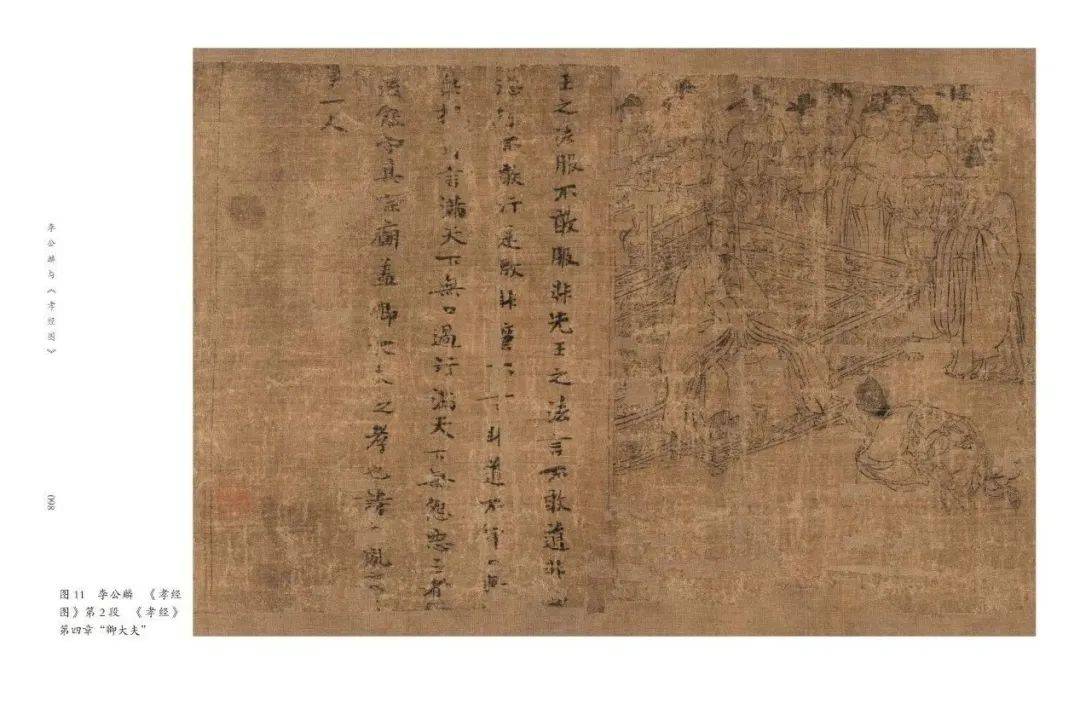 王之法服不敢服非先王之法言不敢道非
德行不敢行是故非 非道不行
言滿天下無口過行滿天下無怨惡三者
後能守其宗廟蓋卿大夫之孝也詩云夙
事一人
李公麟与《孝经图》
098
图 11 李公麟 《孝经
图》第 2 段 《孝经》
第四章“卿大夫”